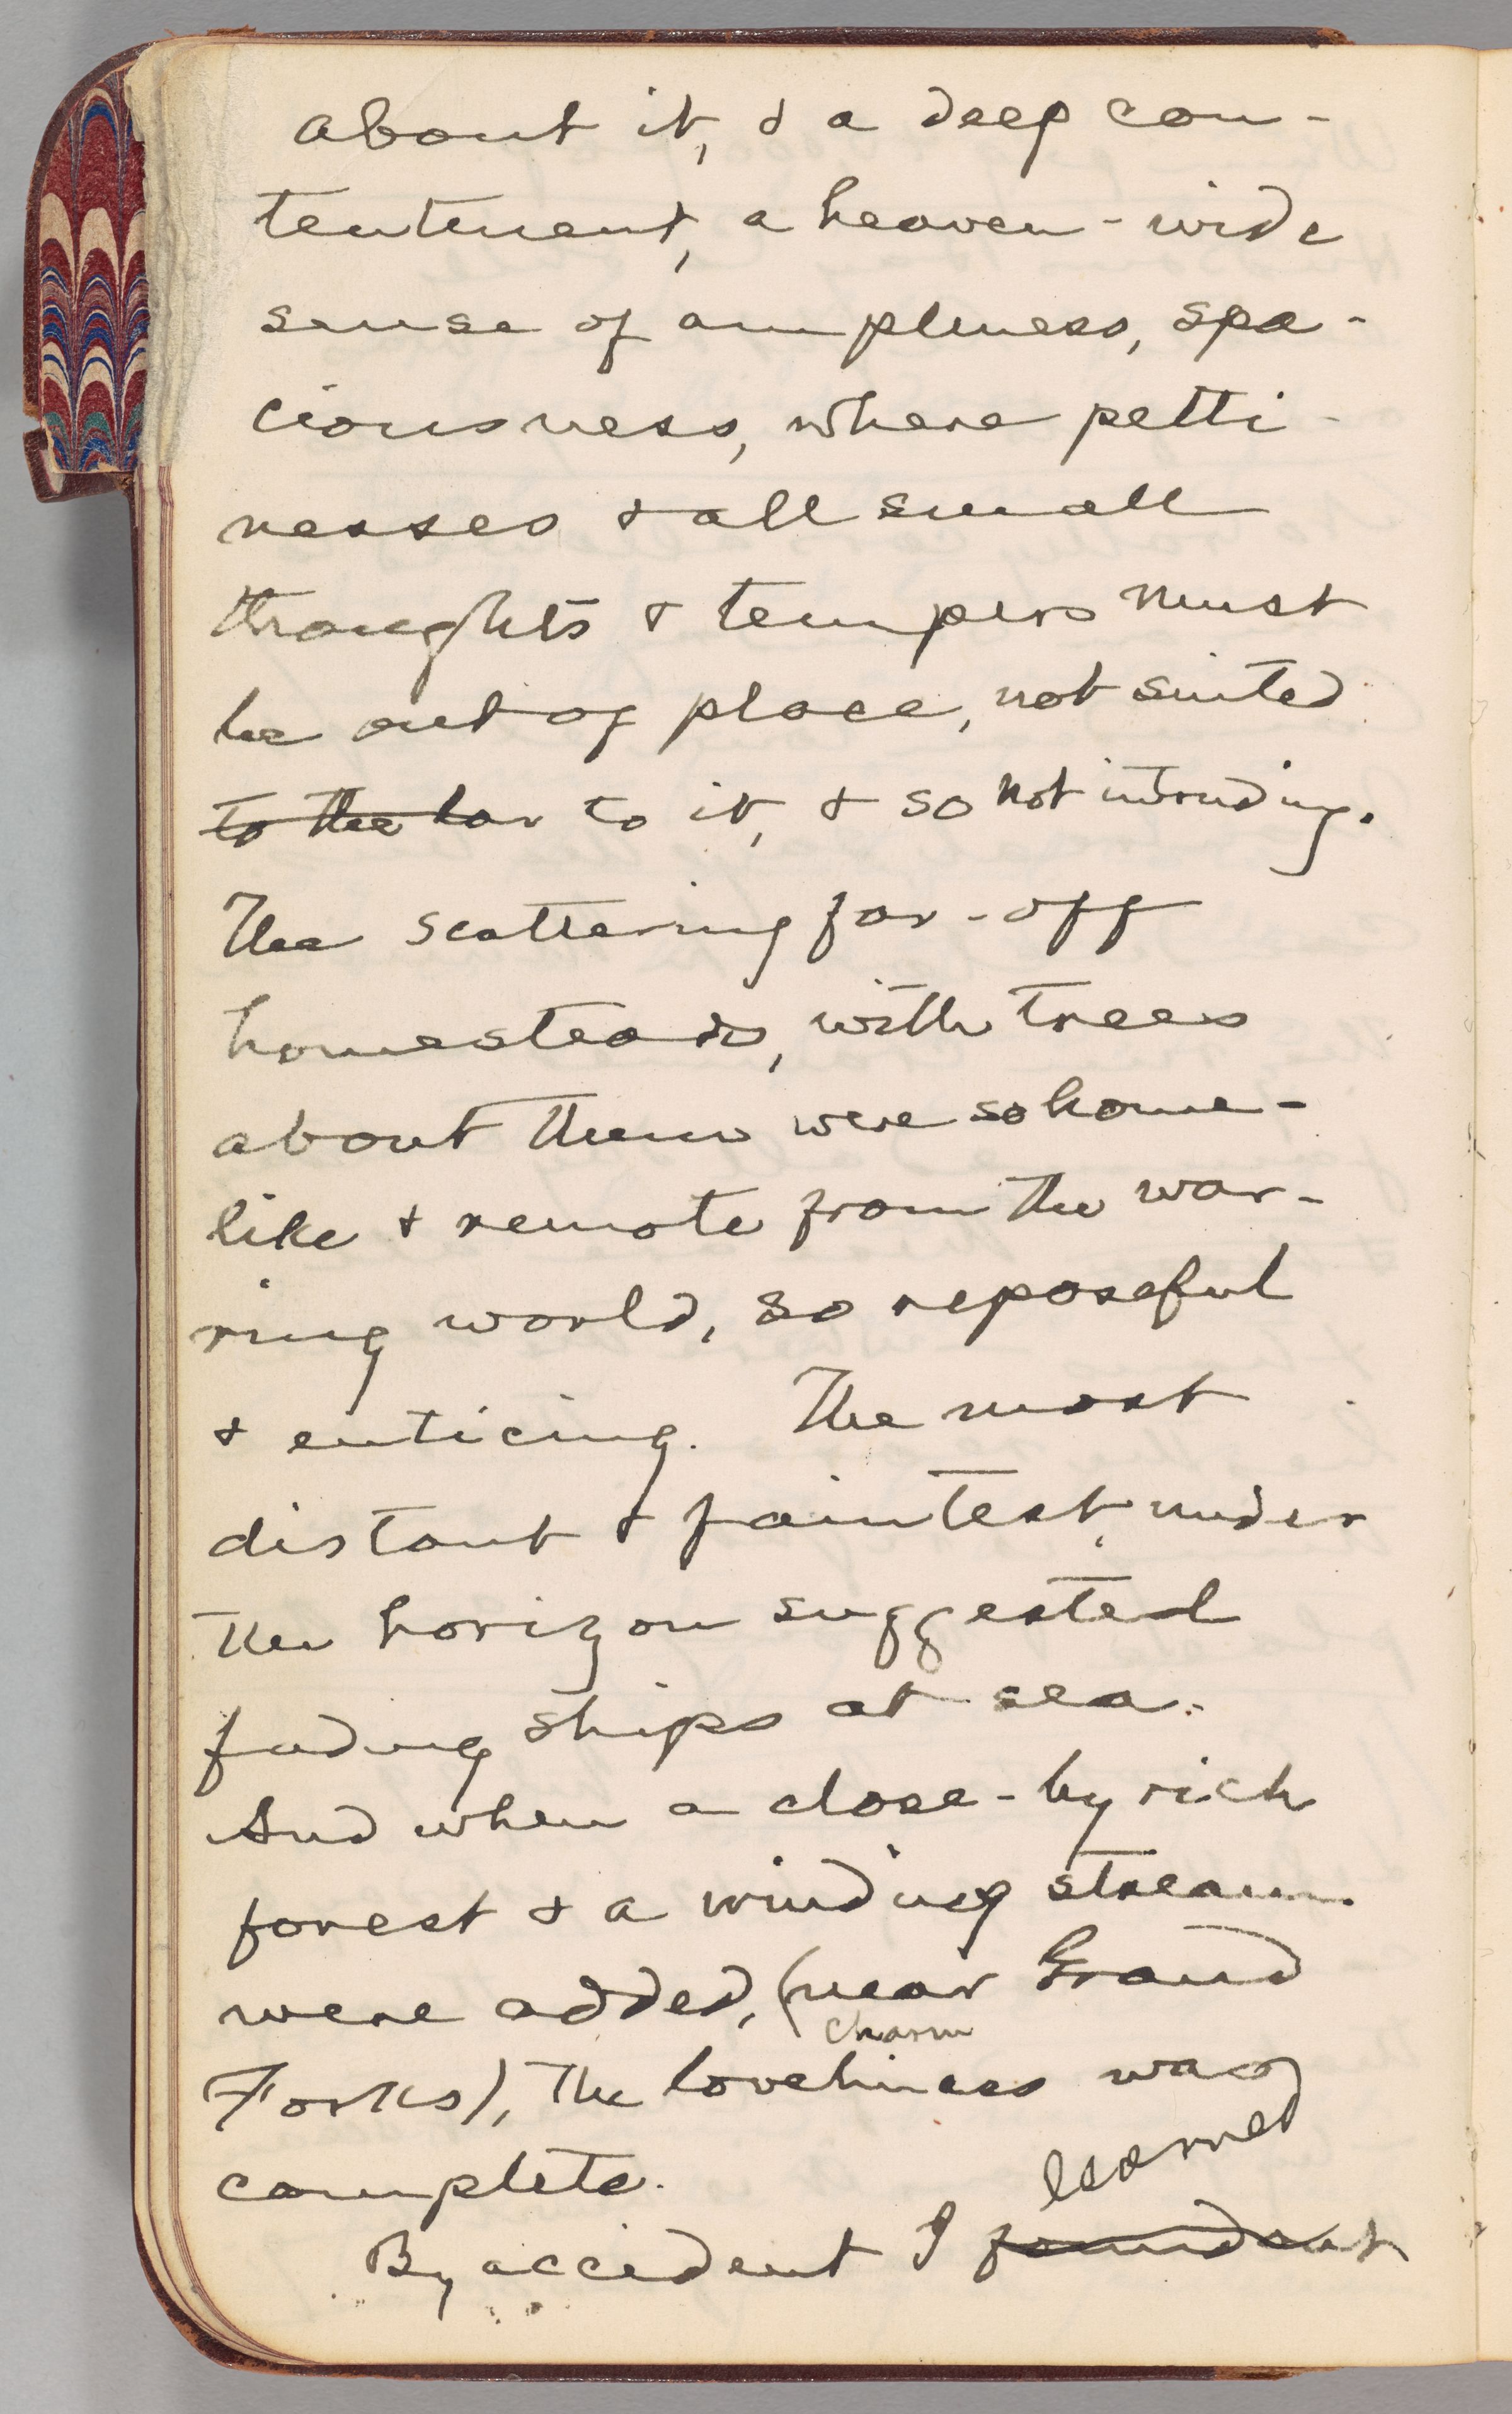 about it, & a deep con-
tentment, a heaven-wide
sense of ampleness, spa-
ciousness, where petti-
nesses & all small
thoughts & tempers must
be out of place, not suited
to the lar to it, & so not intruding.
The scattering far-off
homesteads, with trees
about them were so home-
like & remote from the war-
ring world, so reposeful
& enticing. The most
distant & faintest, under
the horizon suggested
fading ships at sea.
And when a close-by rich
forest & a winding stream
were added, (near Grand
charm
Forks), the loveliness was
complete.
learned
By accident I found out